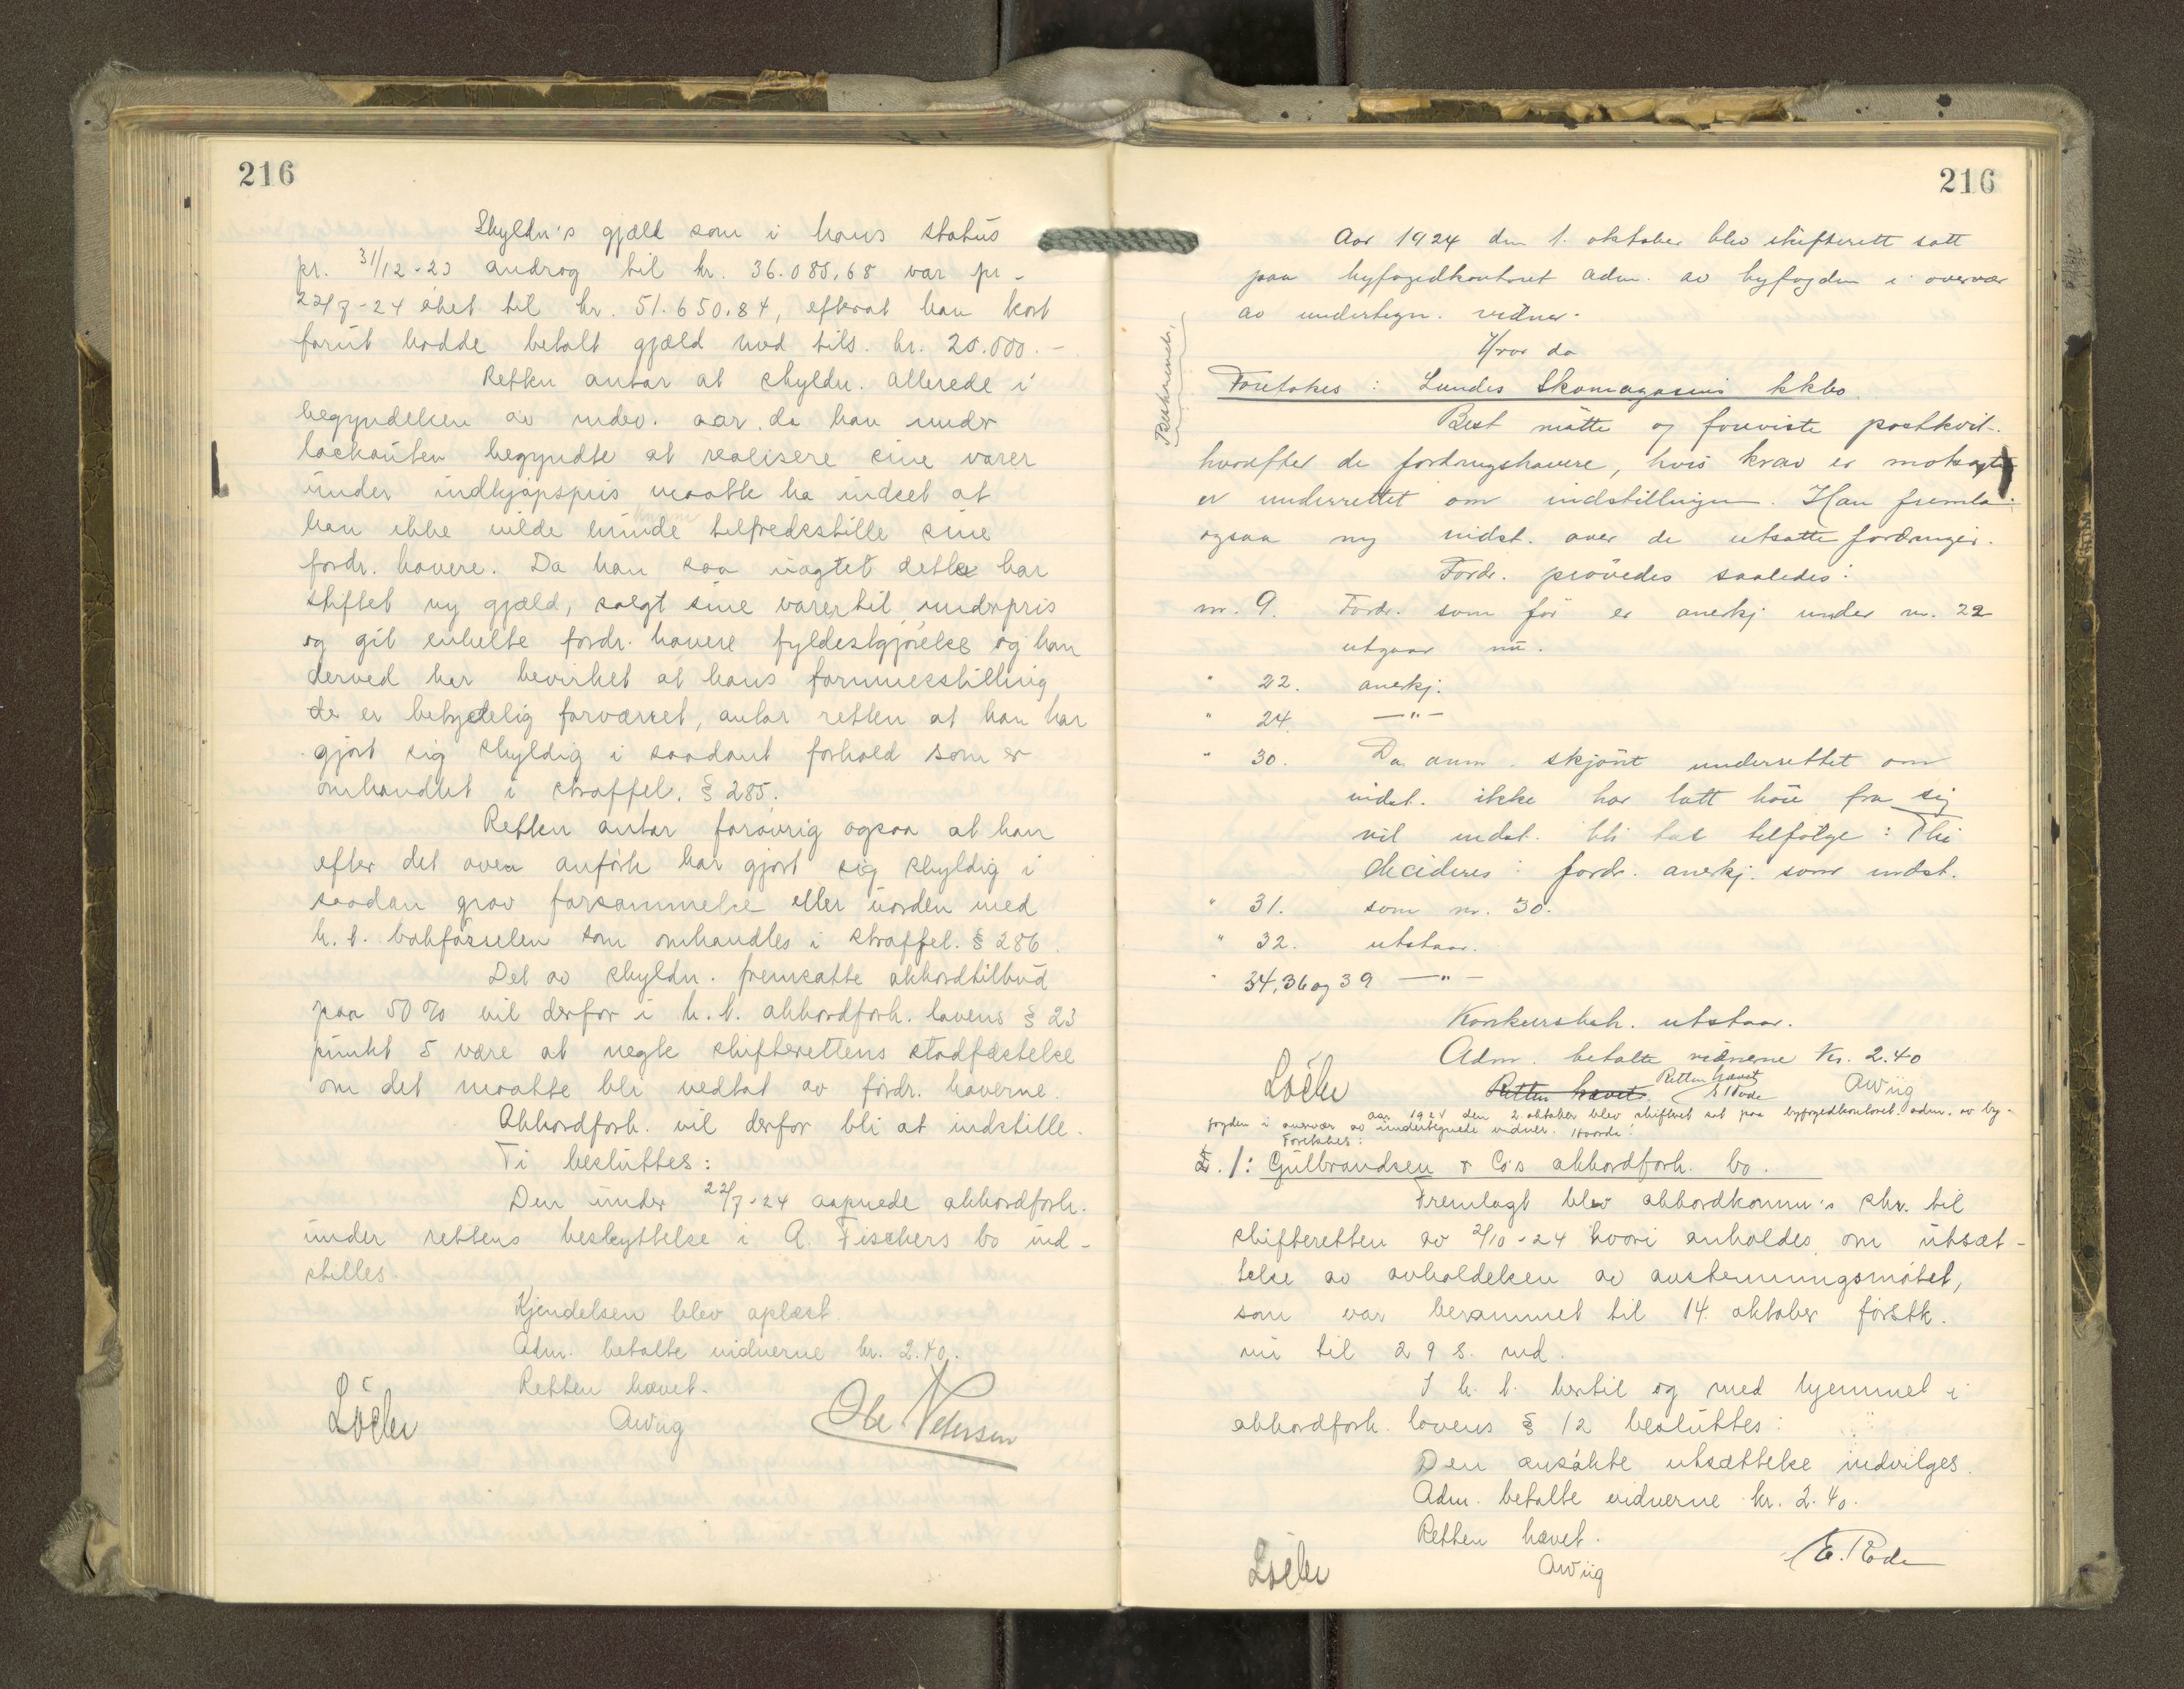 216
Skyldn's gjæld som i hans status
pr. 31/12-23 androg til kr. 36.085,68 var pr.
22/7-24 øket til kr. 51.650.84, efterat han kort
forut hadde betalt gjæld med tils. kr. 20.000.-
Retten antar at skyldn. allerede i
begyndelsen av indev. aar, da han under
lockouten begyndte at realisere sine varer
under indkjøpspris maatte ha indset at
han ikke vilde kunde tilfredsstille sine
fordr. havere. Da han saa uagtet dette har
stiftet ny gjæld, solgt sine varer til underpris
og git enkelte fordr. havere fyldestgjørelse og han
derved har bevirket at hans formuesstilling
de er betydelig forværret, antar retten at han har
gjort sig skyldig i saadant forhold som er
omhandlet i straffel. § 285.
Retten antar forøvrig ogsaa at han
efter det oven anførte har gjort sig skyldig i
saadan grov forsømmelse eller uorden med
h. t. bokførselen som omhandles i straffel. § 286.
Det av skyldn. fremsatte akkordtilbud
paa 50 % vil derfor i h. t. akkordforh. lovens § 23
punkt 5 være at negte skifterettens stadfæstelse
om det maatte bli vedtat av fordr. haverne.
Akkordforh. vil derfor bli at indstille.
Ti besluttes:
Den under 22/7-24 aapnede akkordforh.
under rettens beskyttelse i A. Fischers bo ind-
stilles.
Kjendelsen blev oplæst.
Adm. betalte vidnerne kr. 2.40.
Retten hævet.
Awiig
Ole Petersen
216
Aar 1924 den 1. oktober blev skifterett satt
paa byfogedkontoret adm. av byfogden i overvær
av undertegn. vidner.
Hvor da
Foretokes: Lundes Skomagasins kkbo.
Best. møtte og foreviste postkvit.
hvorefter de fordringshavere, hvis krav er motsagte
er underrettet om indstillingen. Han fremla
ogsaa ny indst. over de utsatte fordringer.
Fordr. prøvedes saaledes:
nr. 9. Fordr. som før er anerkj under nr. 22
utgaar nu.
" 22. anerkj.
" 24. —"—
" 30. Da anm. skjønt underrettet om
indst. ikke har latt høre fra sig
vil indst. bli tat tilfølge: Thi
decideres: fordr. anerkj. som indst.
" 31. som nr. 30.
" 32. utstaar.
" 34, 36 og 39 —"—
Konkursbeh. utstaar.
Adm. betalte vidnerne Kr. 2.40
Retten hævet. Retten hævet
Awiig
Aar 1924 den 2. oktober blev skifteret sat paa byfogedkontoret adm. av by-
fogden i overvær av undertegnede vidner. Hvorda:
Foretokes:
1: Gulbrandsen & Co's akkordforh. bo.
Fremlagt blev akkordkomm's skr. til
skifteretten av 2/10-24 hvori anholdes om utsæt-
telse av avholdelsen av avstemningsmøtet,
som var berammet til 14. oktober førstk.
nu til 29 s. md.
I h. t. hertil og med hjemmel i
akkordforh. lovens § 12 besluttes:
Den ansøkte utsættelse indvilges.
Adm. betalte vidnerne kr. 2.40.
Retten hævet.
Awiig
E. Rode